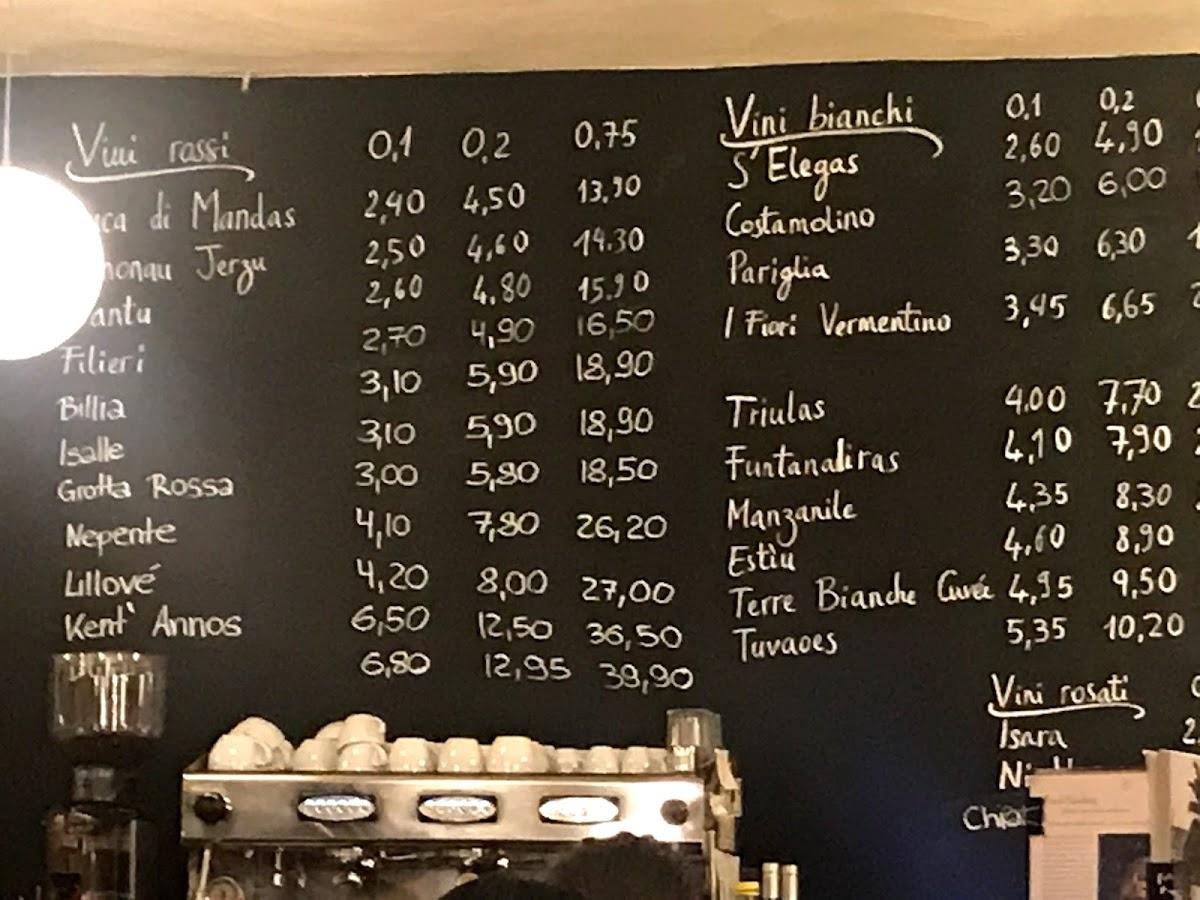 Vini rossi 0,1 0,2 0,75
di Mandas 2,40 4,50 13,90
Jerzu 2,50 4,60 14.30
2,60 4.80 15,90
Filieri 2,70 4,90 16,50
Billia 3,10 5,90 18,90
Isalle 3,10 5,90 18,90
Grotta Rossa 3,00 5,80 18,50
Nepente 4,10 7,80 26,20
Lillové 4,20 8,00 27,00
Kent' Annos 6,50 12,50 36,50
6,80 12,95 39,90
Vini bianchi 0,1 0,2
S'Elegas 2,60 4,90
Costamolino 3,20 6,00
Pariglia 3,30 6,30
I Fiori Vermentino 3,45 6,65
Triulas 4.00 7,70
Funtanaliras 4,10 7,90
Manzanile 4,35 8,30
Estìu 4,60 8,90
Terre Bianche Cuvée 4,95 9,50
Tuvaoes 5,35 10,20
Vini rosati
Isara